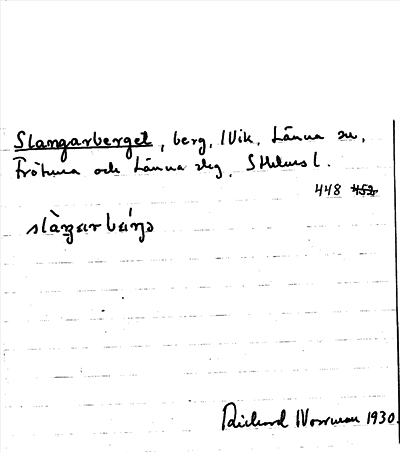 Slangarberget, berg, Vik, Länna sn,
Fröhuna och Länna slg, Sthlms l.
448 452
Richard Norrman 1930.